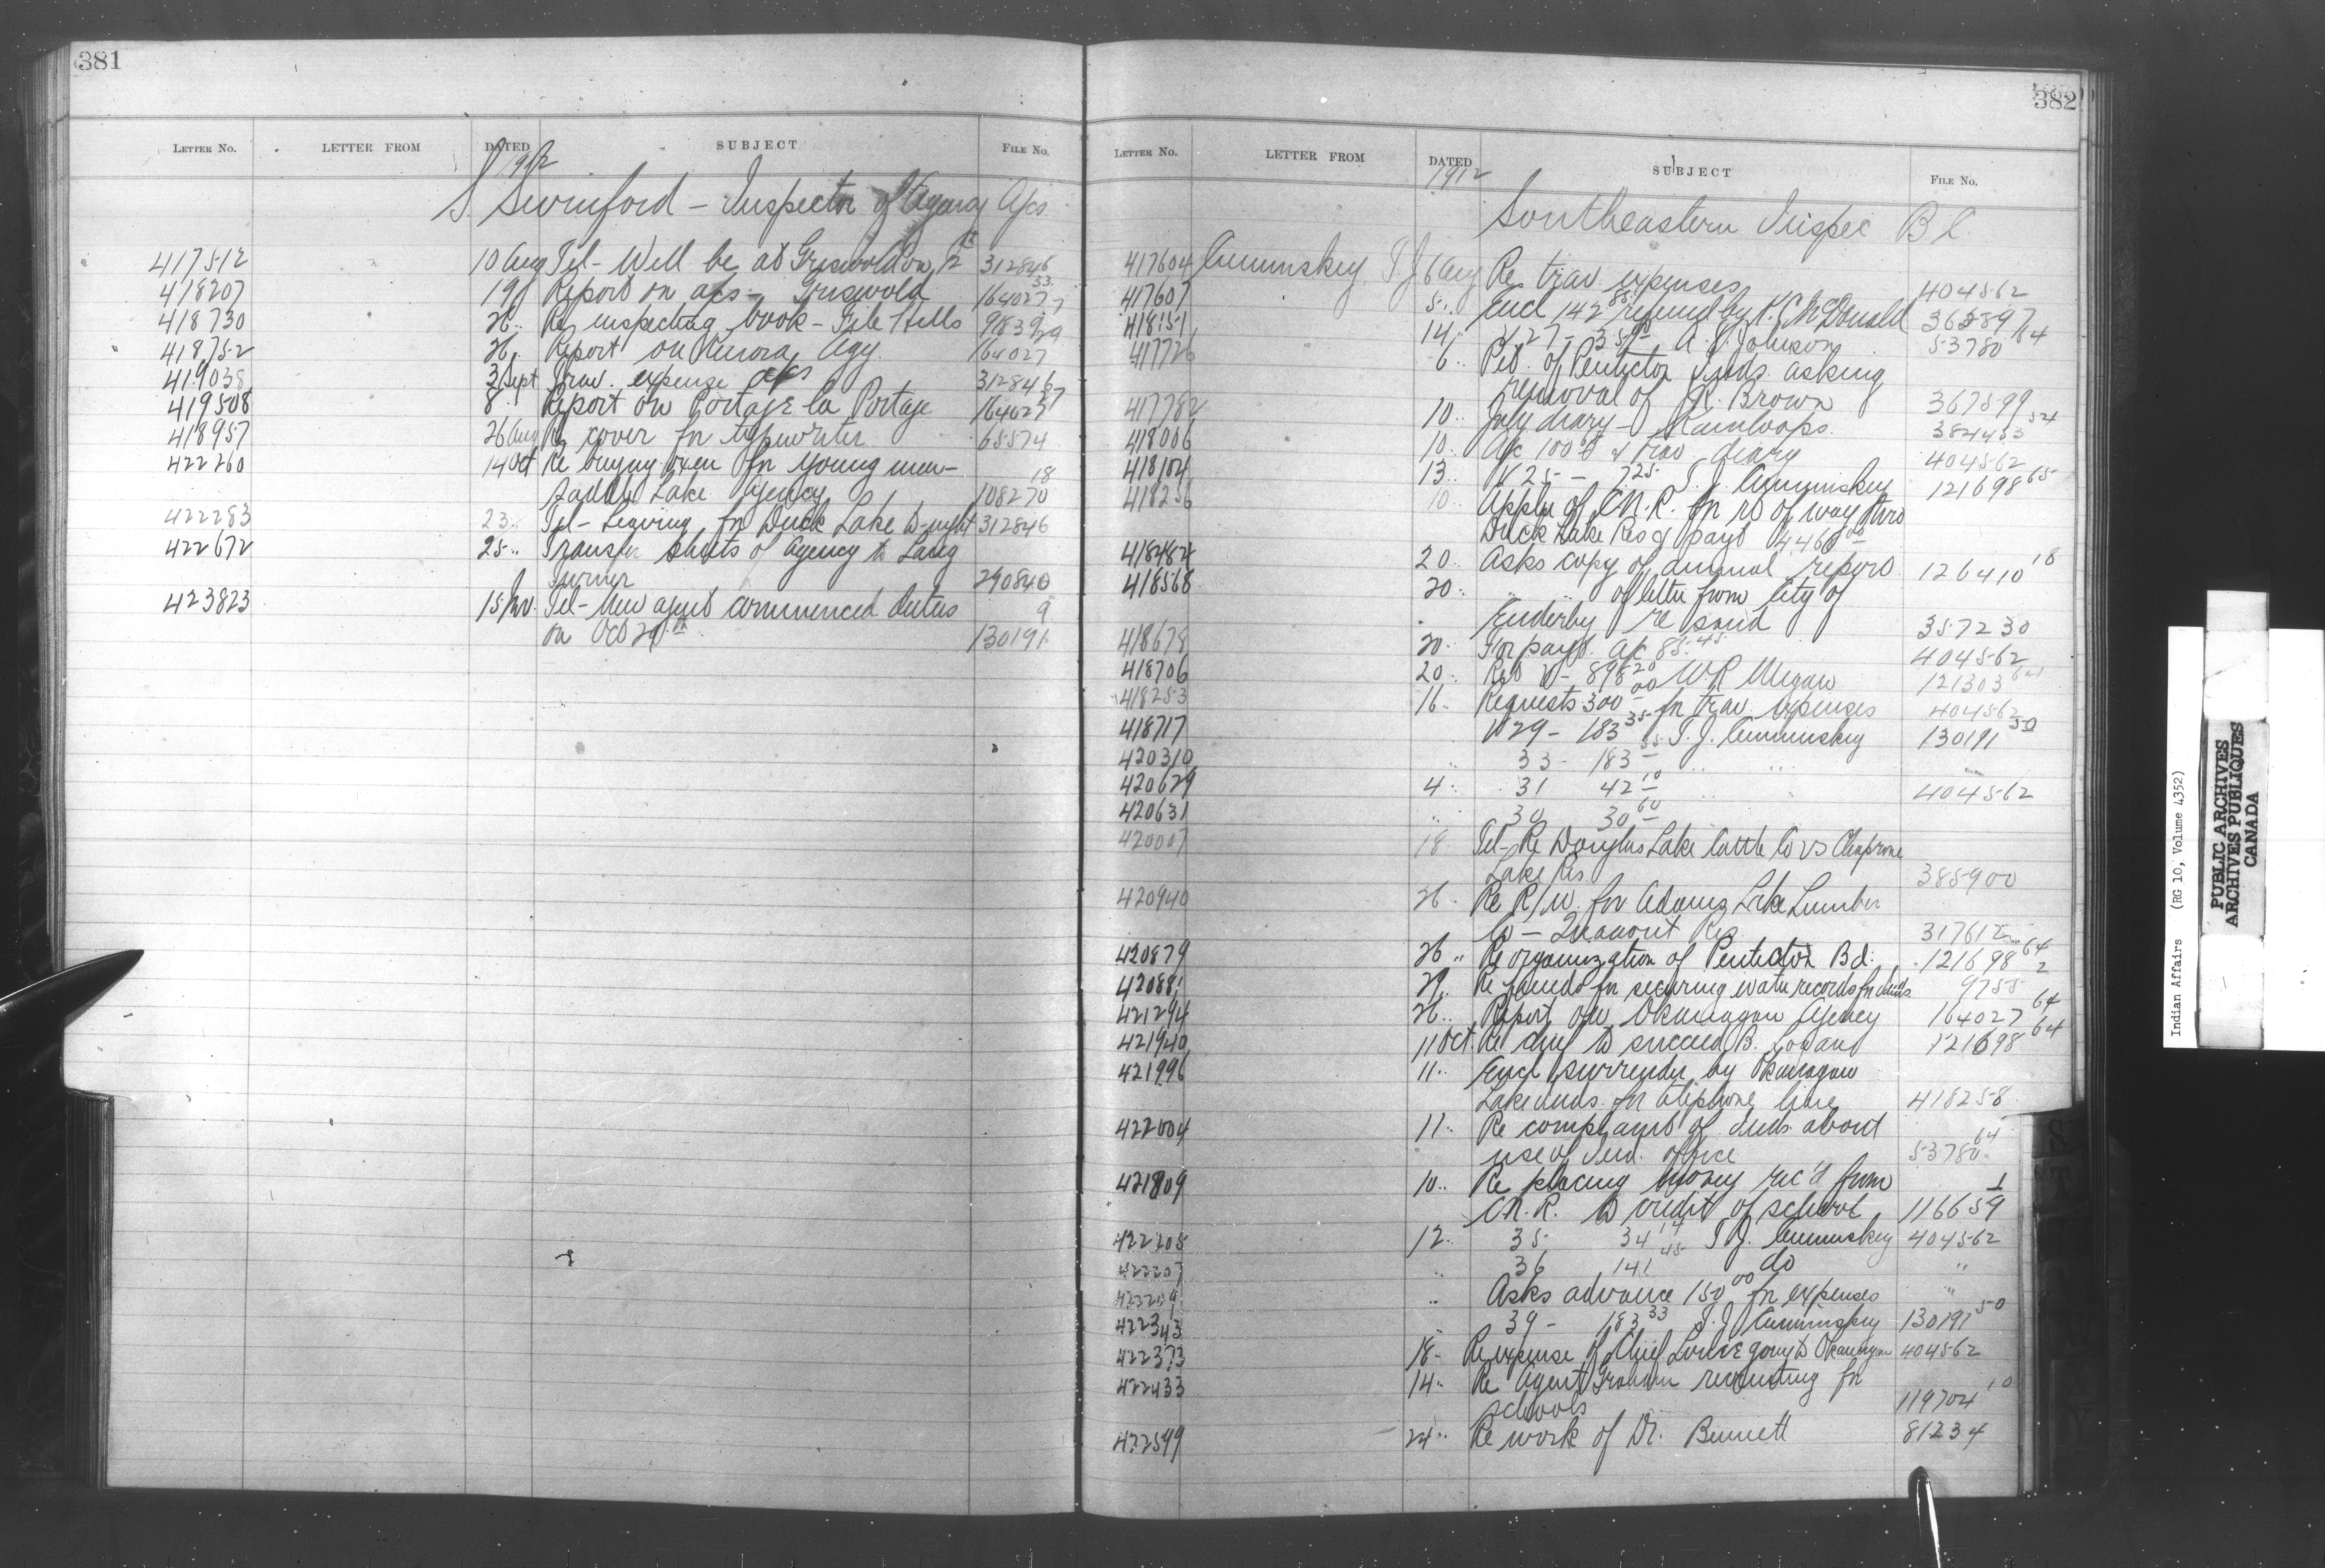 381
LETTER NO. LETTER FROM DATED SUBJECT FILE NO.
1912
S. Swinford – Inspector of Agency A/cs
417512 10 Aug Tel – Will be at Griswold on 12th 312846
418207 19 Report on a/cs – Griswold 164027 33
418730 26 .. Re inspecting book – File Hills
418752 26. Report on Kenora Agy. 164027
419038 3 Sept Trav. expense a/cs 312846
419508 8 .. Report on Portage la Portage 164027
418957 26 Aug Re cover for typewriter 65574
422260 14 Oct Re buying oxen for young men –
Saddle Lake Agency 108270 18
422283 23 .. Tel – Leaving for Duck Lake to-night 312846
422672 25 .. Transfer sheets of Agency to Lang
Turner 290840
423823 15 Nov. Tel – New agent commenced duties
on Oct 29th 130191 9
382
LETTER NO. LETTER FROM DATED SUBJECT FILE NO.
1912
Southeastern Inspec B C.
417604 Cummiskey, T.J. 6 Aug Re trav. expenses 404562
417607 5 .. Encl 142 85 refund by K.C. McDonald 365897
418151 14 .. V 27 – A. E. Johnson 53780 64
417726 6 .. Pet. of Penticton Inds. asking
removal of Mr. Brown 367599
417782 10 .. July diary – Kamloops. 384453 54
418006 10 .. A/c 100 & trav diary 404562
418104 13 .. V 25 – 7 25 T. J. Cummiskey 121698 65
418256 10 .. Appln of C.N.R. for rt of way thro
Duck Lake Res & payt 4460 00
418484 20 .. Asks copy of annual report 126410 18
418568 20 .. " " of letter from City of
Enderby re sand 357230
418678 20 .. For payt. a/c 85.45 404562
418706 20 .. Retd V – 898 20 W.R. Megaw 121303
418253 16 .. Requests 300 00 for trav. expenses 404562
418717 V 29 – 183 35 T. J. Cummiskey 130191 50
420310 " 33 – 183 35 " " "
420629 4 .. 31 42 10 " " 404562
420631 " 30 30 60
420007 18 Tel – Re Douglas Lake Cattle Co vs
Lake Res 385900
420940 26 .. Re R/W. for Adams Lake Lumber
Co – Res. 317612
420879 26 .. Re organization of Penticton Bd. 121698 64
42088 29 .. Re for securing water records for Inds. 9755 2
421294 26 .. Report on Okanagan Agency 164027 64
421940 11 Oct. Re chief to succeed B. Logan 121698 64
421996 11 .. Encl surrender by Okanagan
Lake Inds. for telephone line 418258
422004 11 .. Re complaint of Inds. about
use of Ind. office 53780 64
421809 10 .. Re placing money rec'd from
C.N.R. to credit of school 116659 1
422205 12 .. 35 34 14 T. J. Cummiskey 404562
422207 " 36 141 45 do "
422209 " Asks advance 150 00 for expenses "
422343 39 – 183 33 T. J. Cummiskey 130191 50
422373 18 – Re expense of Chief Louis going to Okanagan 404562
422433 14 .. Re Agent Graham recruiting for
schools 119704 10
422599 24 .. Re work of Dr. Bennett 81234
Indian Affairs (RG 10, Volume 4352)
PUBLIC ARCHIVES
ARCHIVES PUBLIQUES
CANADA